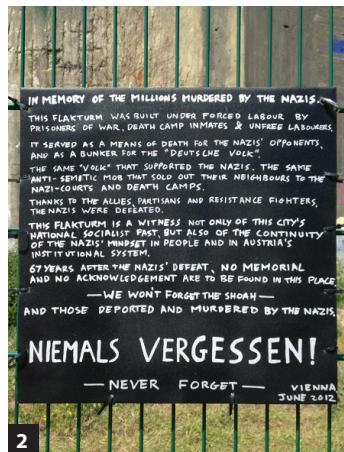 IN MEMORY OF THE MILLIONS MURDERED BY THE NAZIS.
THIS FLAKTURM WAS BUILT UNDER FORCED LABOUR BY
PRISONERS OF WAR, DEATH CAMP INMATES & UNFREE LABOURERS.
IT SERVED AS A MEANS OF DEATH FOR THE NAZIS' OPPONENTS,
AND AS A BUNKER FOR THE "DEUTSCHE VOLK".
THE SAME "VOLK" THAT SUPPORTED THE NAZIS, THE SAME
ANTI-SEMETIC MOB THAT SOLD OUT THEIR NEIGHBOURS TO THE
NAZI-COURTS AND DEATH CAMPS.
THANKS TO THE ALLIES, PARTISANS AND RESISTANCE FIGHTERS,
THE NAZIS WERE DEFEATED.
THIS FLAKTURM IS A WITNESS NOT ONLY OF THIS CITY'S
NATIONAL SOCIALIST PAST, BUT ALSO OF THE CONTINUITY
OF THE NAZIS' MINDSET IN PEOPLE AND IN AUSTRIA'S
INSTITUTIONAL SYSTEM.
67 YEARS AFTER THE NAZIS' DEFEAT, NO MEMORIAL
AND NO ACKNOWLEDGEMENT ARE TO BE FOUND IN THIS PLACE
— WE WON'T FORGET THE SHOAH —
AND THOSE DEPORTED AND MURDERED BY THE NAZIS.
NIEMALS VERGESSEN!
— NEVER FORGET —
VIENNA
JUNE 2012
2